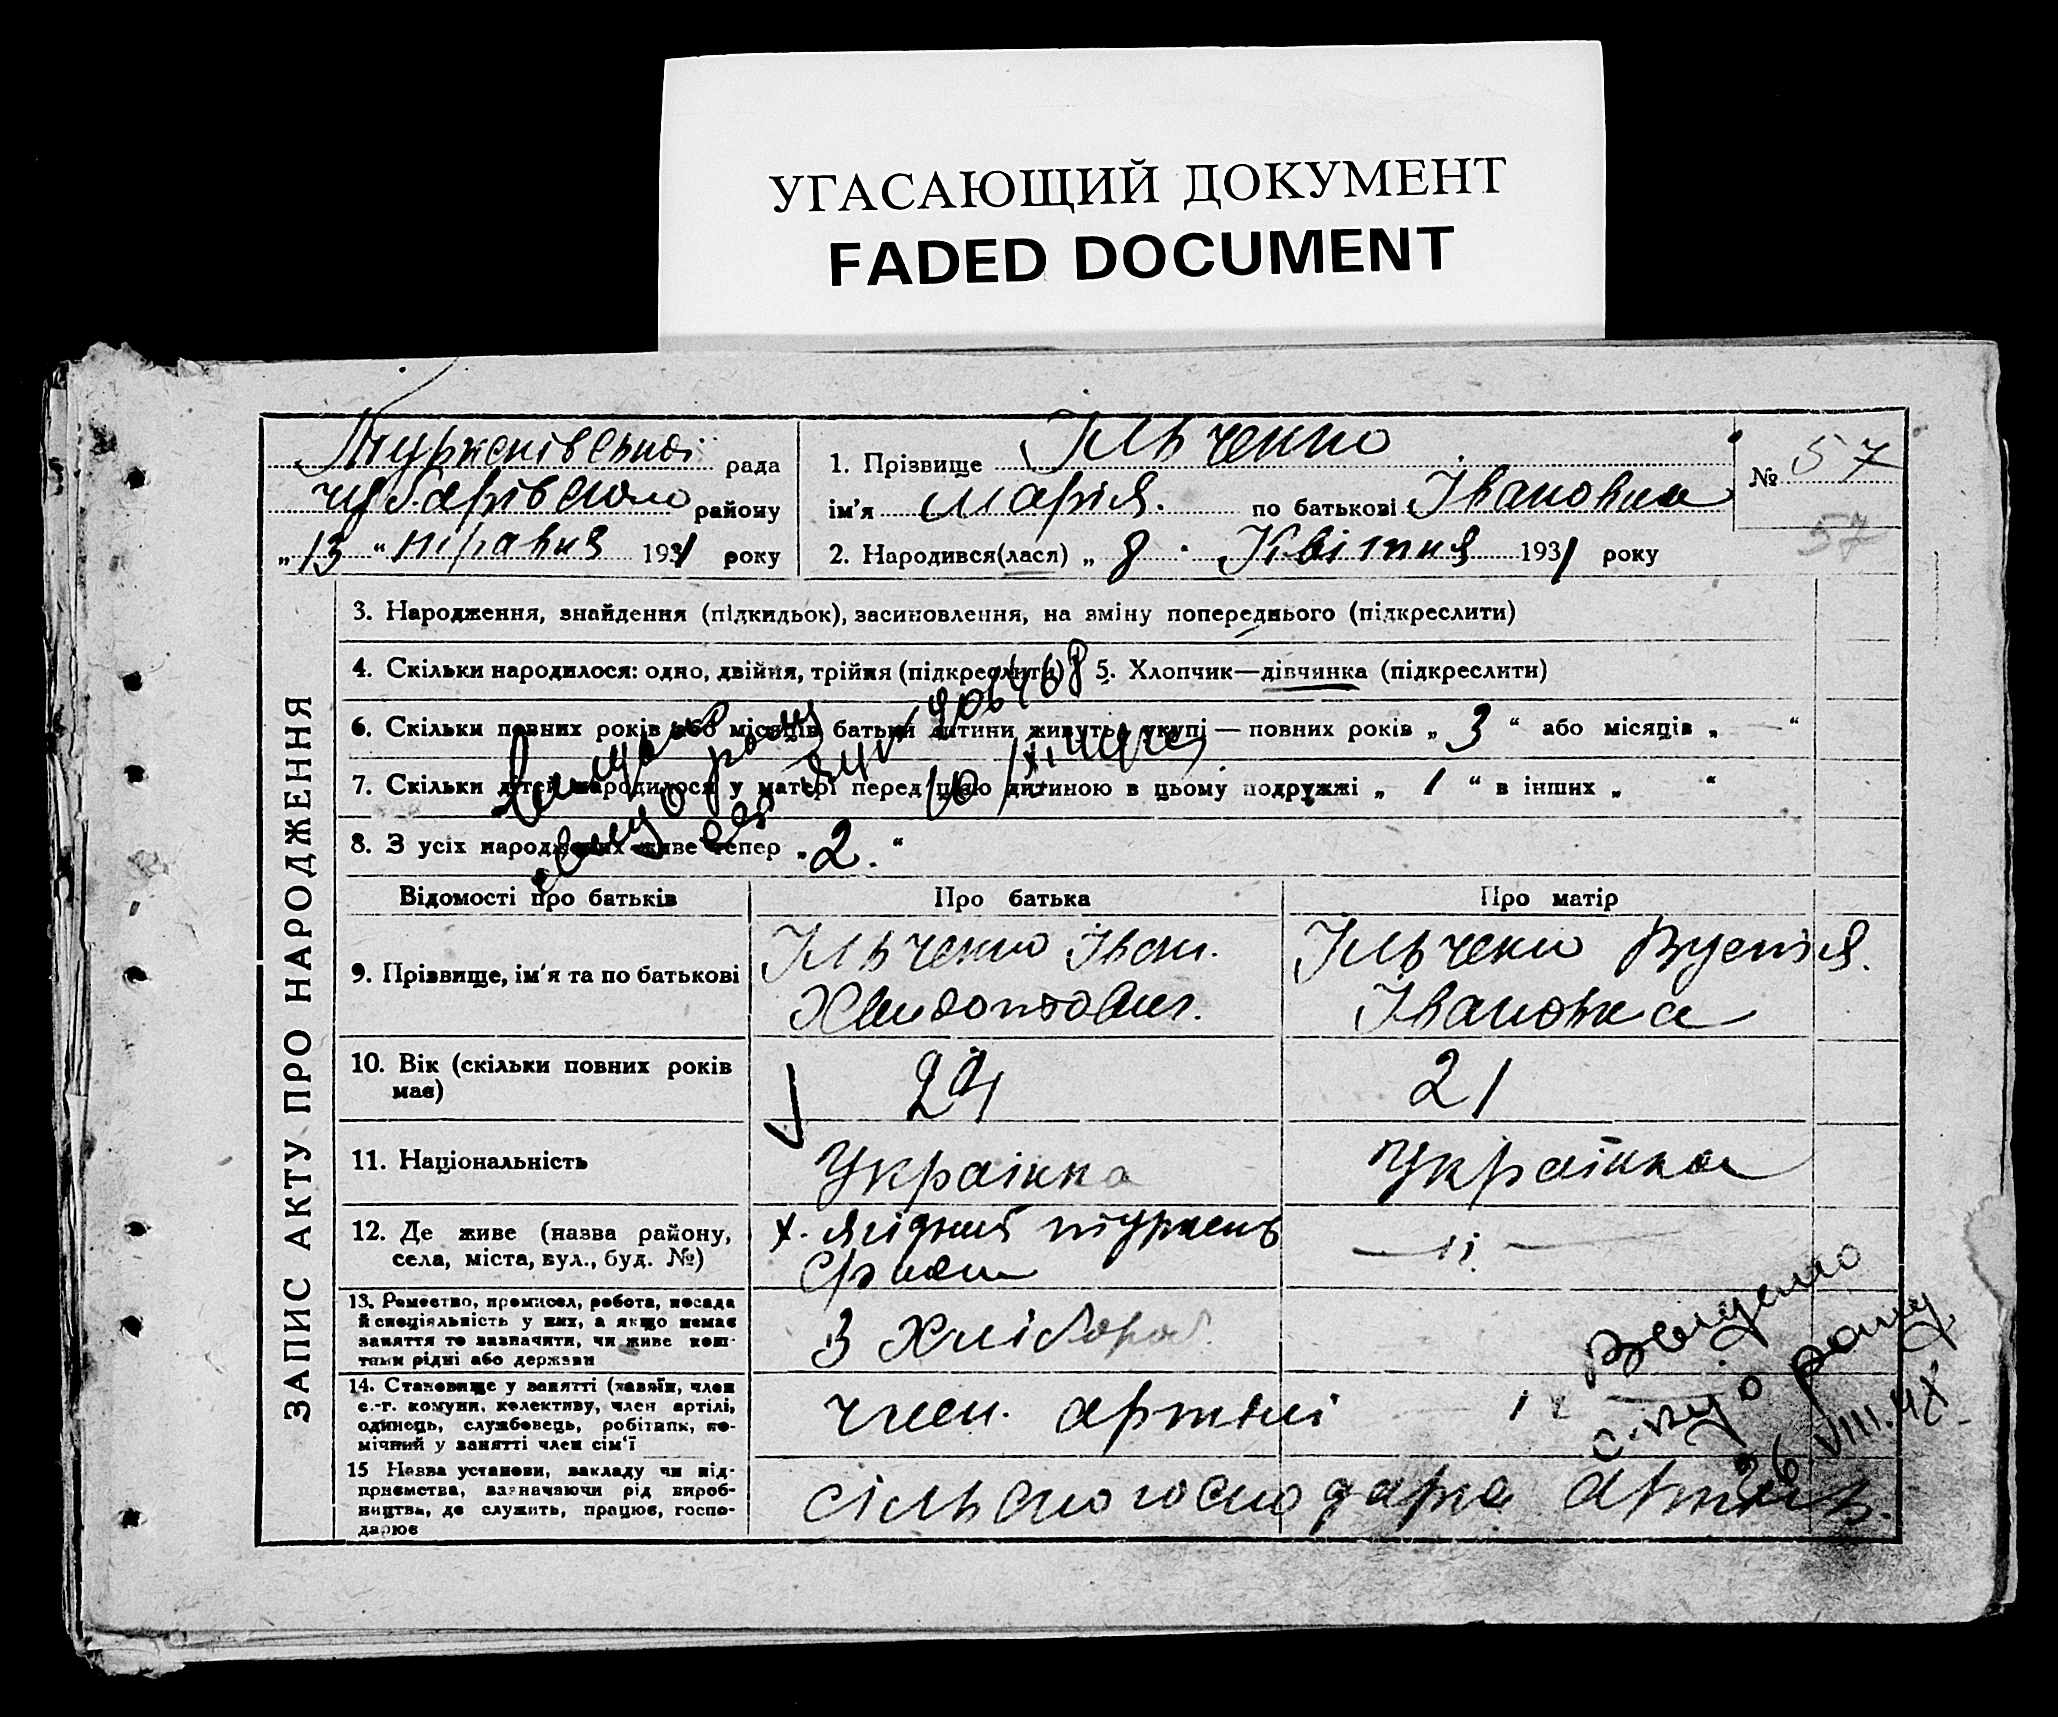 УГАСАЮЩИЙ ДОКУМЕНТ
FADED DOCUMENT
рада
Чубарівського району
„ 13 “ травня 1931 року
1. Прізвище Ільченко
ім'я Марія. по батькові Івановна
2. Народився(лася) „ 8 Квітня 1931 року
№ 57
57
ЗАПИС АКТУ ПРО НАРОДЖЕННЯ
3. Народження, знайдення (підкидьок), засиновлення, на зміну попереднього (підкреслити)
4. Скільки народилося: одно, двійня, трійня (підкреслити) 5. Хлопчик—дівчинка (підкреслити)
6. Скільки повних років або місяців батьки дитини живуть вкупі — повних років „ 3 “ або місяців „ — “
7. Скільки дітей народилося у матері перед цією дитиною в цьому подружжі „ 1 “ в інших „ “
8. З усіх народжених живе тепер „ 2. “
Відомості про батьків Про батька Про матір
9. Прізвище, ім'я та по батькові
Ільченко Іван.
Ільченко
Івановна
10. Вік (скільки повних років має)
24
21
11. Національність
Українка
Українка
12. Де живе (назва району, села, міста, вул., буд. №)
х. Ягідний
— 11 —
13. Ремество, промисел, робота, посада й спеціяльність у них, а якщо немає заняття то визначити, чи живе коштами рідні або держави
З Хлібороб
14. Становище у занятті (хазяїн, член с.-г. комуни, колективу, член артілі, одинець, службовець, робітник, помічний у занятті член сім'ї
член. артілі
15 Назва установи, закладу чи підприємства, зазначаючи рід виробництва, де служить, працює, господарює
сільськогосподарська артіль.